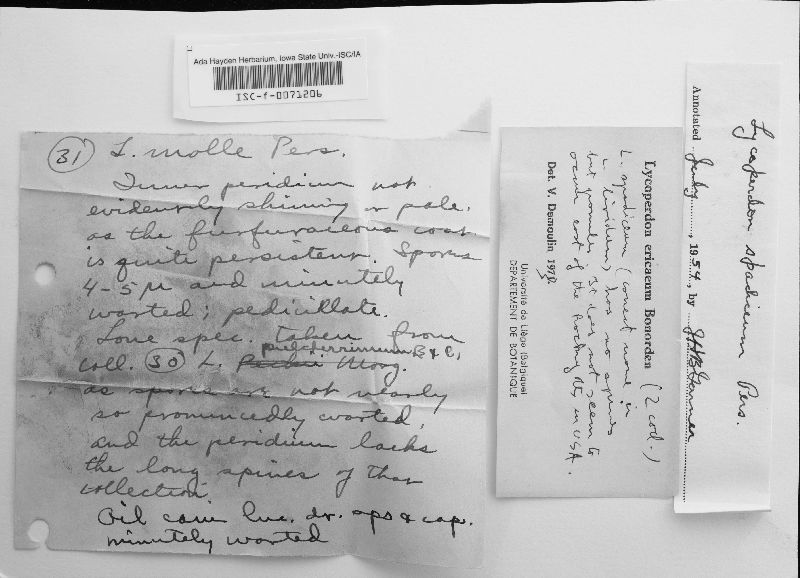 Ada Hayden Herbarium, Iowa State Univ.-ISC/IA
ISC-f-0071206
31 L. molle Pers.
Inner peridium not
evidently shining or pale.
as the furfuraceous coat
is quite persistent. Spores
4-5 µ and minutely
warted; pedicillate.
Lone spec. taken from
pulcherrimum B & C,
coll. 30 L. Peckii Morg.
as spores are not nearly
so pronouncedly warted,
and the peridium lacks
the long spines of that
collection.
Oil imm. dr. sps & cap.
minutely warted
Lycoperdon ericaeum Bonorden (2 cod.)
L. spadiceum (correct name is
L. lividum) has no spines
but granules. It does not seem to
occur east of the Rocky Mts in USA.
Det. V. Demoulin 1971.
Université de Liège (Belgique)
DEPARTEMENT DE BOTANIQUE
Lycoperdon spadiceum Pers.
Annotated July, 1954, by